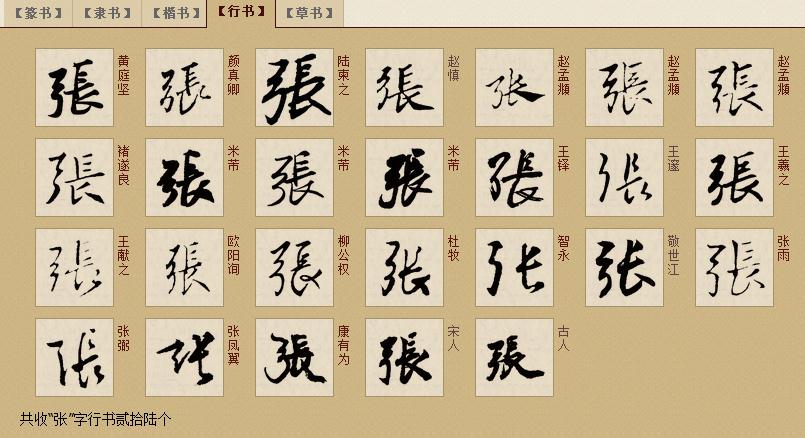 【篆书】 【隶书】 【楷书】 【行书】 【草书】
張 黄庭坚 張 颜真卿 張 陆柬之 張 赵慎 張 赵孟頫 張 赵孟頫 張 赵孟頫
張 褚遂良 張 米芾 張 米芾 張 米芾 張 王铎 張 王邃 張 王羲之
張 王献之 張 欧阳询 張 柳公权 張 杜牧 張 智永 張 敬世江 張 张雨
張 张弼 張 张凤翼 張 康有为 張 宋人 張 古人
共收“张”字行书贰拾陆个